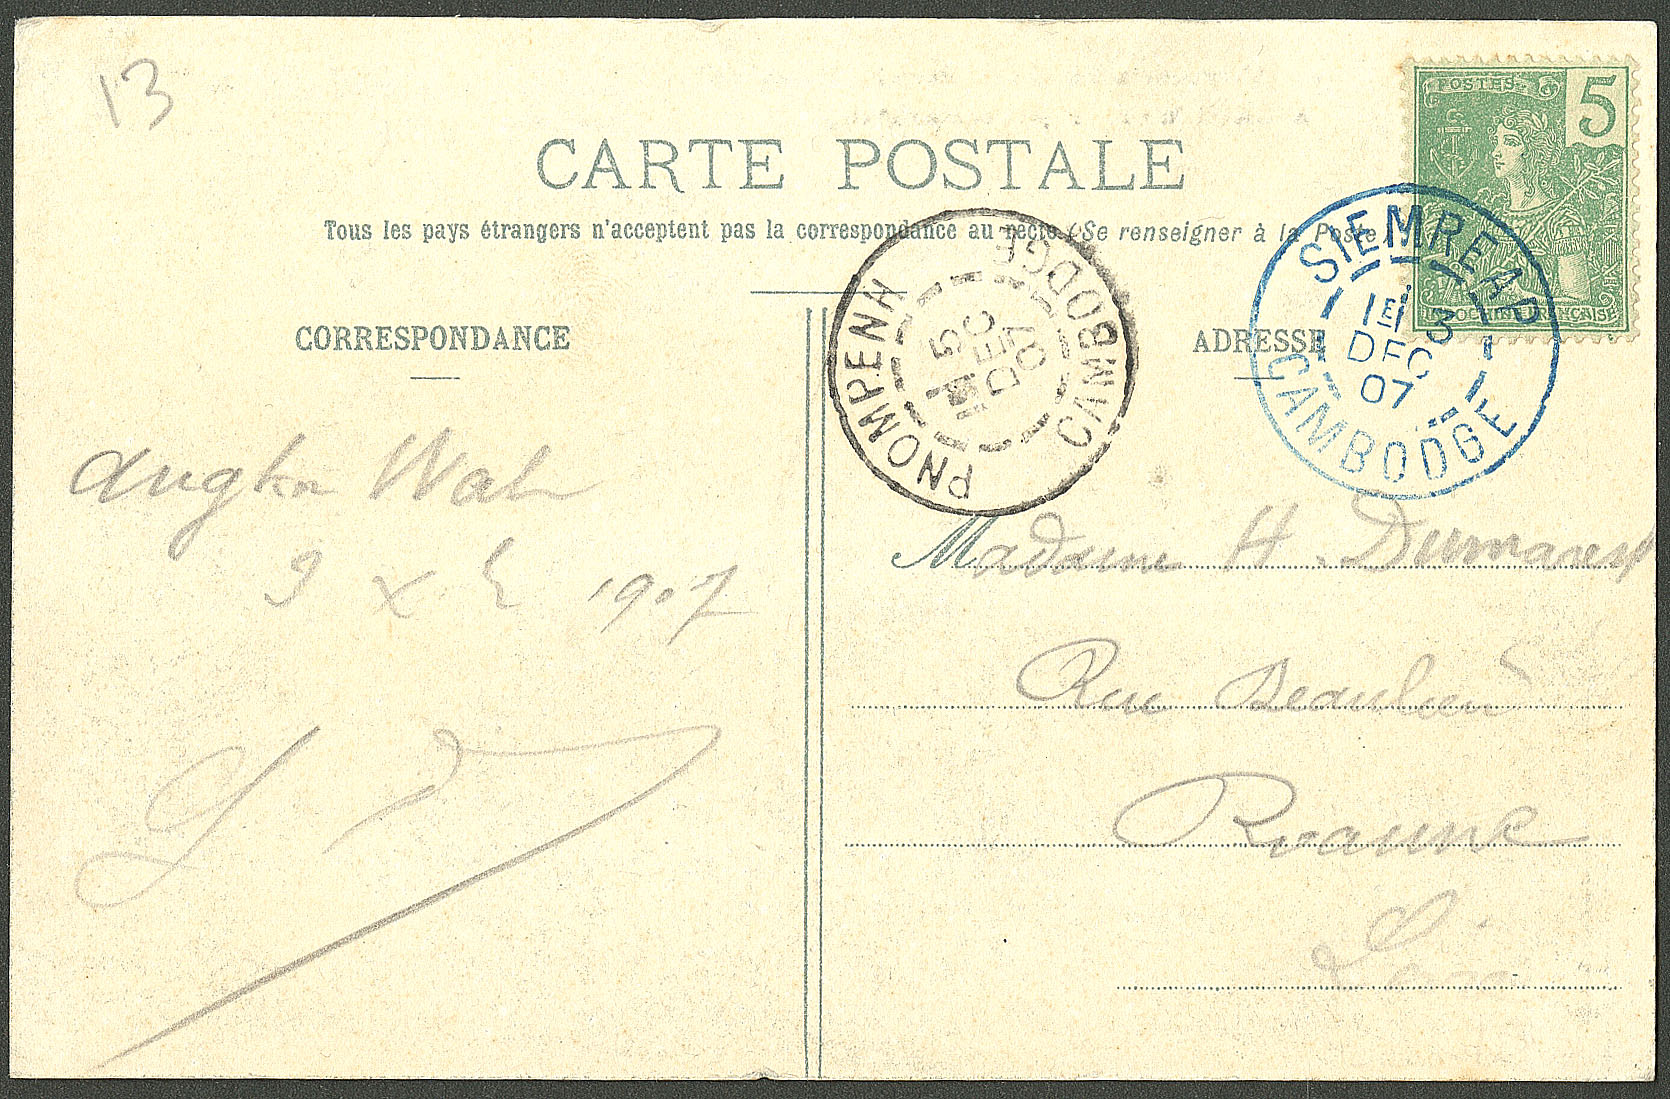 13
POSTES
5
INDOCHINE FRANÇAISE
CARTE POSTALE
Tous les pays étrangers n'acceptent pas la correspondance au recto (Se renseigner à la Poste
SIEMREAP
1E
3
DEC
07
CAMBODGE
PNOMPENH
5
DEC
07
CAMBODGE
CORRESPONDANCE
ADRESSE
Angkor Wat
1907
Madame H. Dumarest
Rue Beaulieu
Roanne
Loire